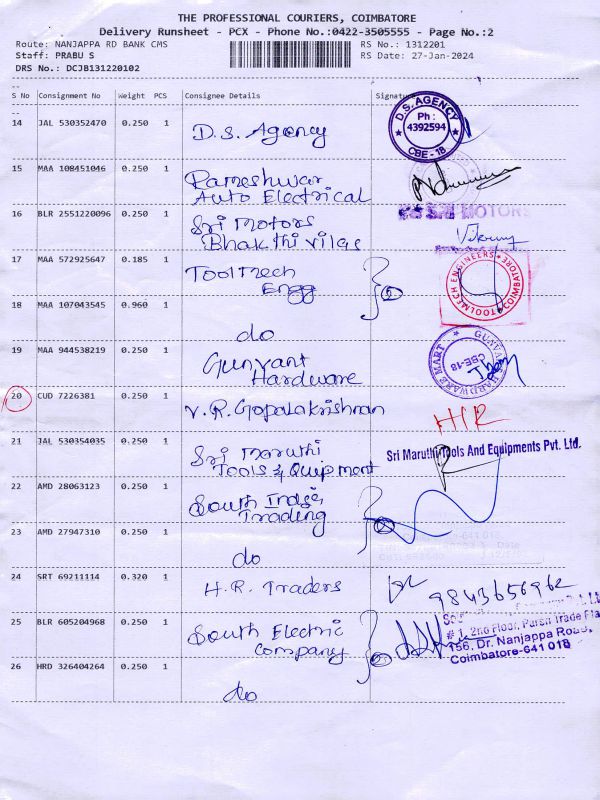 THE PROFESSIONAL COURIERS, COIMBATORE
Delivery Runsheet - PCX - Phone No.:0422-3505555 - Page No.:2
Route: NANJAPPA RD BANK CMS RS No.: 1312201
Staff: PRABU S RS Date: 27-Jan-2024
DRS No.: DCJB131220102
S No Consignment No Weight PCS Consignee Details Signature
14 JAL 530352470 0.250 1 D.S. Agency
D.S. AGENCY
Ph :
4392594
CBE - 18
15 MAA 108451046 0.250 1 Rameshwar
Auto Electrical
16 BLR 2551220096 0.250 1 Sri Motors
Bhakthi vilas
SRI MOTORS
17 MAA 572925647 0.185 1 Toolmech
Engg
2
TOOLMECH ENGINEERS
COIMBATORE
18 MAA 107043545 0.960 1 do
19 MAA 944538219 0.250 1 Gunvant
Hardware
GUNVANT HARDWARE MART
CBE-18
20 CUD 7226381 0.250 1 V.R. Gopalakrishnan
21 JAL 530354035 0.250 1 Sri Maruthi
Tools & Quipment
Sri Maruthi Tools And Equipments Pvt. Ltd.
22 AMD 28063123 0.250 1 South India
Trading
23 AMD 27947310 0.250 1 do
24 SRT 69211114 0.320 1 H.R. Traders
9843656962
25 BLR 605204968 0.250 1 South Electric
Company
# 1, 2nd Floor, Parsn Trade Pla
156, Dr. Nanjappa Road,
Coimbatore-641 018
26 HRD 326404264 0.250 1 do